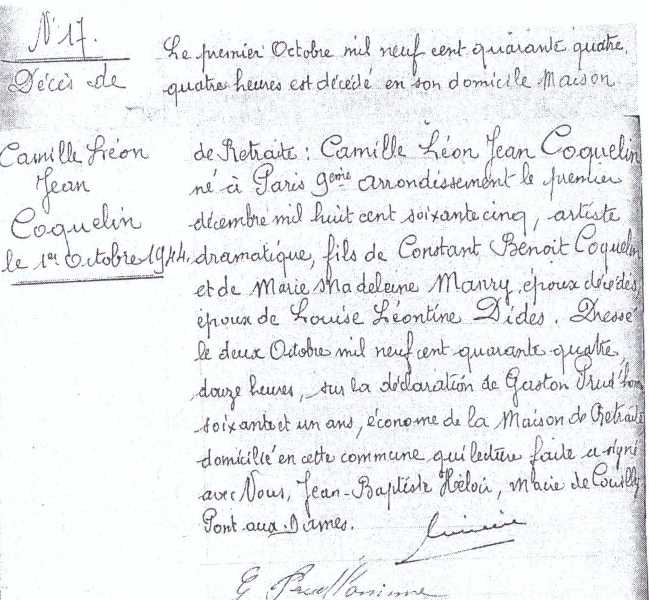 N° 17.
Décès de
Camille Léon
Jean
Coquelin
le 1er Octobre 1944.
Le premier Octobre mil neuf cent quarante quatre,
quatre heures est décédé en son domicile Maison
de Retraite : Camille Léon Jean Coquelin
né à Paris 9eme arrondissement le premier
décembre mil huit cent soixante cinq, artiste
dramatique, fils de Constant Benoit Coquelin
et de Marie Madeleine Manry, époux décédés,
époux de Louise Léontine Dides. Dressé
le deux Octobre mil neuf cent quarante quatre,
douze heures, sur la déclaration de Gaston Prud'hom
soixante et un ans, économe de la Maison de Retraite
domicilié en cette commune qui lecture faite a signé
avec Nous, Jean-Baptiste Héloin, maire de Couilly
Pont aux Dames.